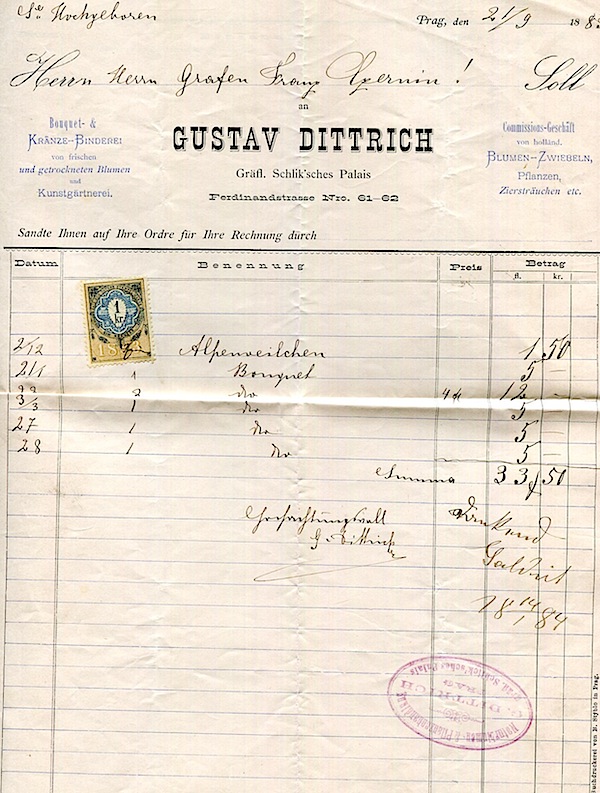 Sr Hochgeboren
Prag, den 21/9 188
Herrn Herrn Grafen Franz Czernin! Soll
an
Bouquet- &
KRÄNZE-BINDEREI
von frischen
und getrockneten Blumen
und
Kunstgärtnerei.
GUSTAV DITTRICH
Gräfl. Schlik'sches Palais
Ferdinandstrasse Nro. 61—62
Commissions-Geschäft
von holländ.
BLUMEN-ZWIEBELN,
Pflanzen,
Ziersträuchen etc.
Sandte Ihnen auf Ihre Ordre für Ihre Rechnung durch
Datum Benennung Preis Betrag
fl. kr.
1
kr.
18
2/12 Alpenveilchen 1 50
2/1 1 Bouquet 5 —
2 do 12 —
3/3 1 do 5
27 1 do 5 —
28 1 do 5 —
Summa 33 50
Hochachtungsvoll
G. Dittrich
Dankend
Saldirt
18 14/1 84
G. DITTRICH
PRAG
Gräfl. Schlick'sches Palais
Buchdruckerei von B. Stýblo in Prag.